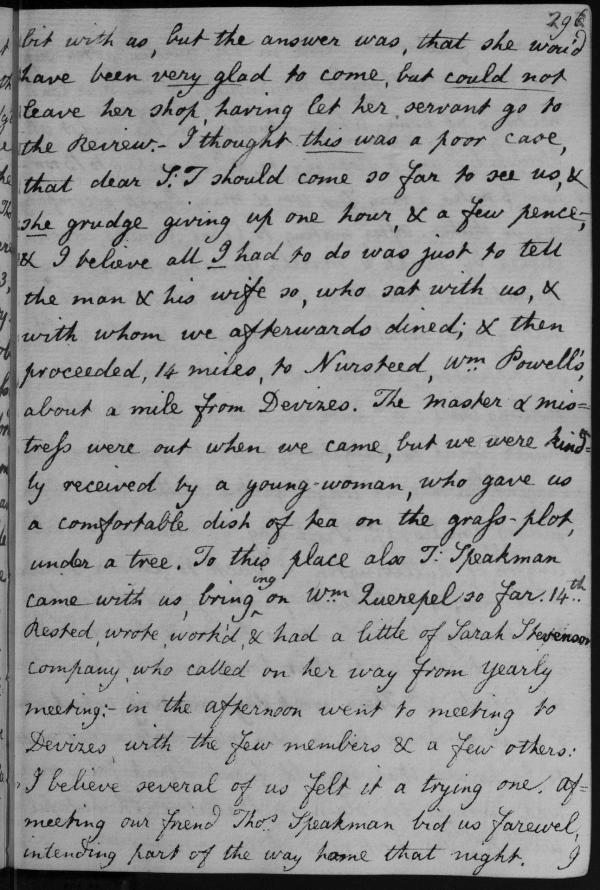 296
bit with us, but the answer was, that she wou'd
have been very glad to come, but could not
leave her shop, having let her servant go to
the Review.- I thought this was a poor case,
that dear S: T should come so far to see us, &
she grudge giving up one hour, & a few pence;
& I believe all I had to do was just to tell
the man & his wife so, who sat with us, &
with whom we afterwards dined; & then
proceeded, 14 miles, to Nursteed, Wm Powell's,
about a mile from Devizes. The master & mis=
tress were out when we came, but we were kind=
ly received by a young-woman, who gave us
a comfortable dish of tea on the grass-plot,
under a tree. To this place also T: Speakman
came with us, bringing on Wm Querepel so far. 14th
Rested, wrote, work'd, & had a little of Sarah Stevenson
company, who called on her way from yearly
meeting:- in the afternoon went to meeting to
Devizes, with the few members & a few others:
I believe several of us felt it a trying one. Af=
meeting our friend Thos Speakman bid us farewel,
intending part of the way home that night. I